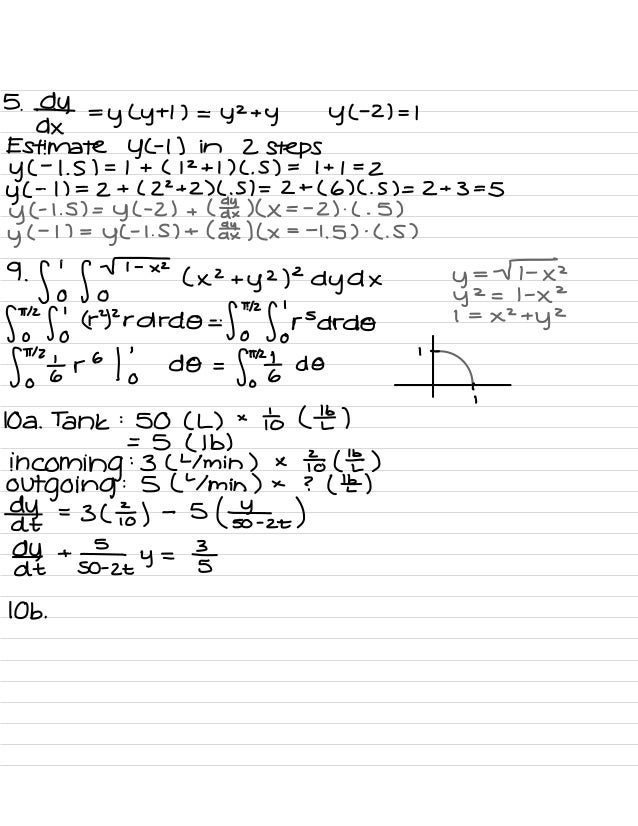 5. dy/dx = y(y+1) = y²+y y(-2)=1
Estimate y(-1) in 2 steps
y(-1.5) = 1 + (1²+1)(.5) = 1+1=2
y(-1) = 2 + (2²+2)(.5) = 2+(6)(.5) = 2+3=5
y(-1.5) = y(-2) + (dy/dx)(x=-2)·(.5)
y(-1) = y(-1.5) + (dy/dx)(x=-1.5)·(.5)
9. ∫₀¹ ∫₀^√(1-x²) (x²+y²)² dydx
y = √1-x²
y² = 1-x²
1 = x²+y²
∫₀^π/2 ∫₀¹ (r²)² r dr dθ = ∫₀^π/2 ∫₀¹ r⁵ dr dθ
∫₀^π/2 1/6 r⁶ |₀¹ dθ = ∫₀^π/2 1/6 dθ
1
1
10a. Tank: 50 (L) × 1/10 (lb/L)
= 5 (lb)
incoming: 3 (L/min) × 2/10 (lb/L)
outgoing: 5 (L/min) × ? (lb/L)
dy/dt = 3(2/10) - 5(y/50-2t)
dy/dt + 5/50-2t y = 3/5
10b.